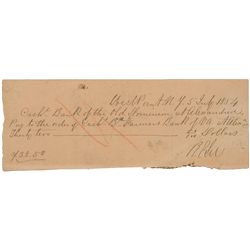 West Point N.Y. 5 July 1854
Cash. Bank of the Old Dominion, at Alexandria
Pay to the order of Cash. Farmers Bank of Va
Thirty two Dollars
$32.50
R E Lee